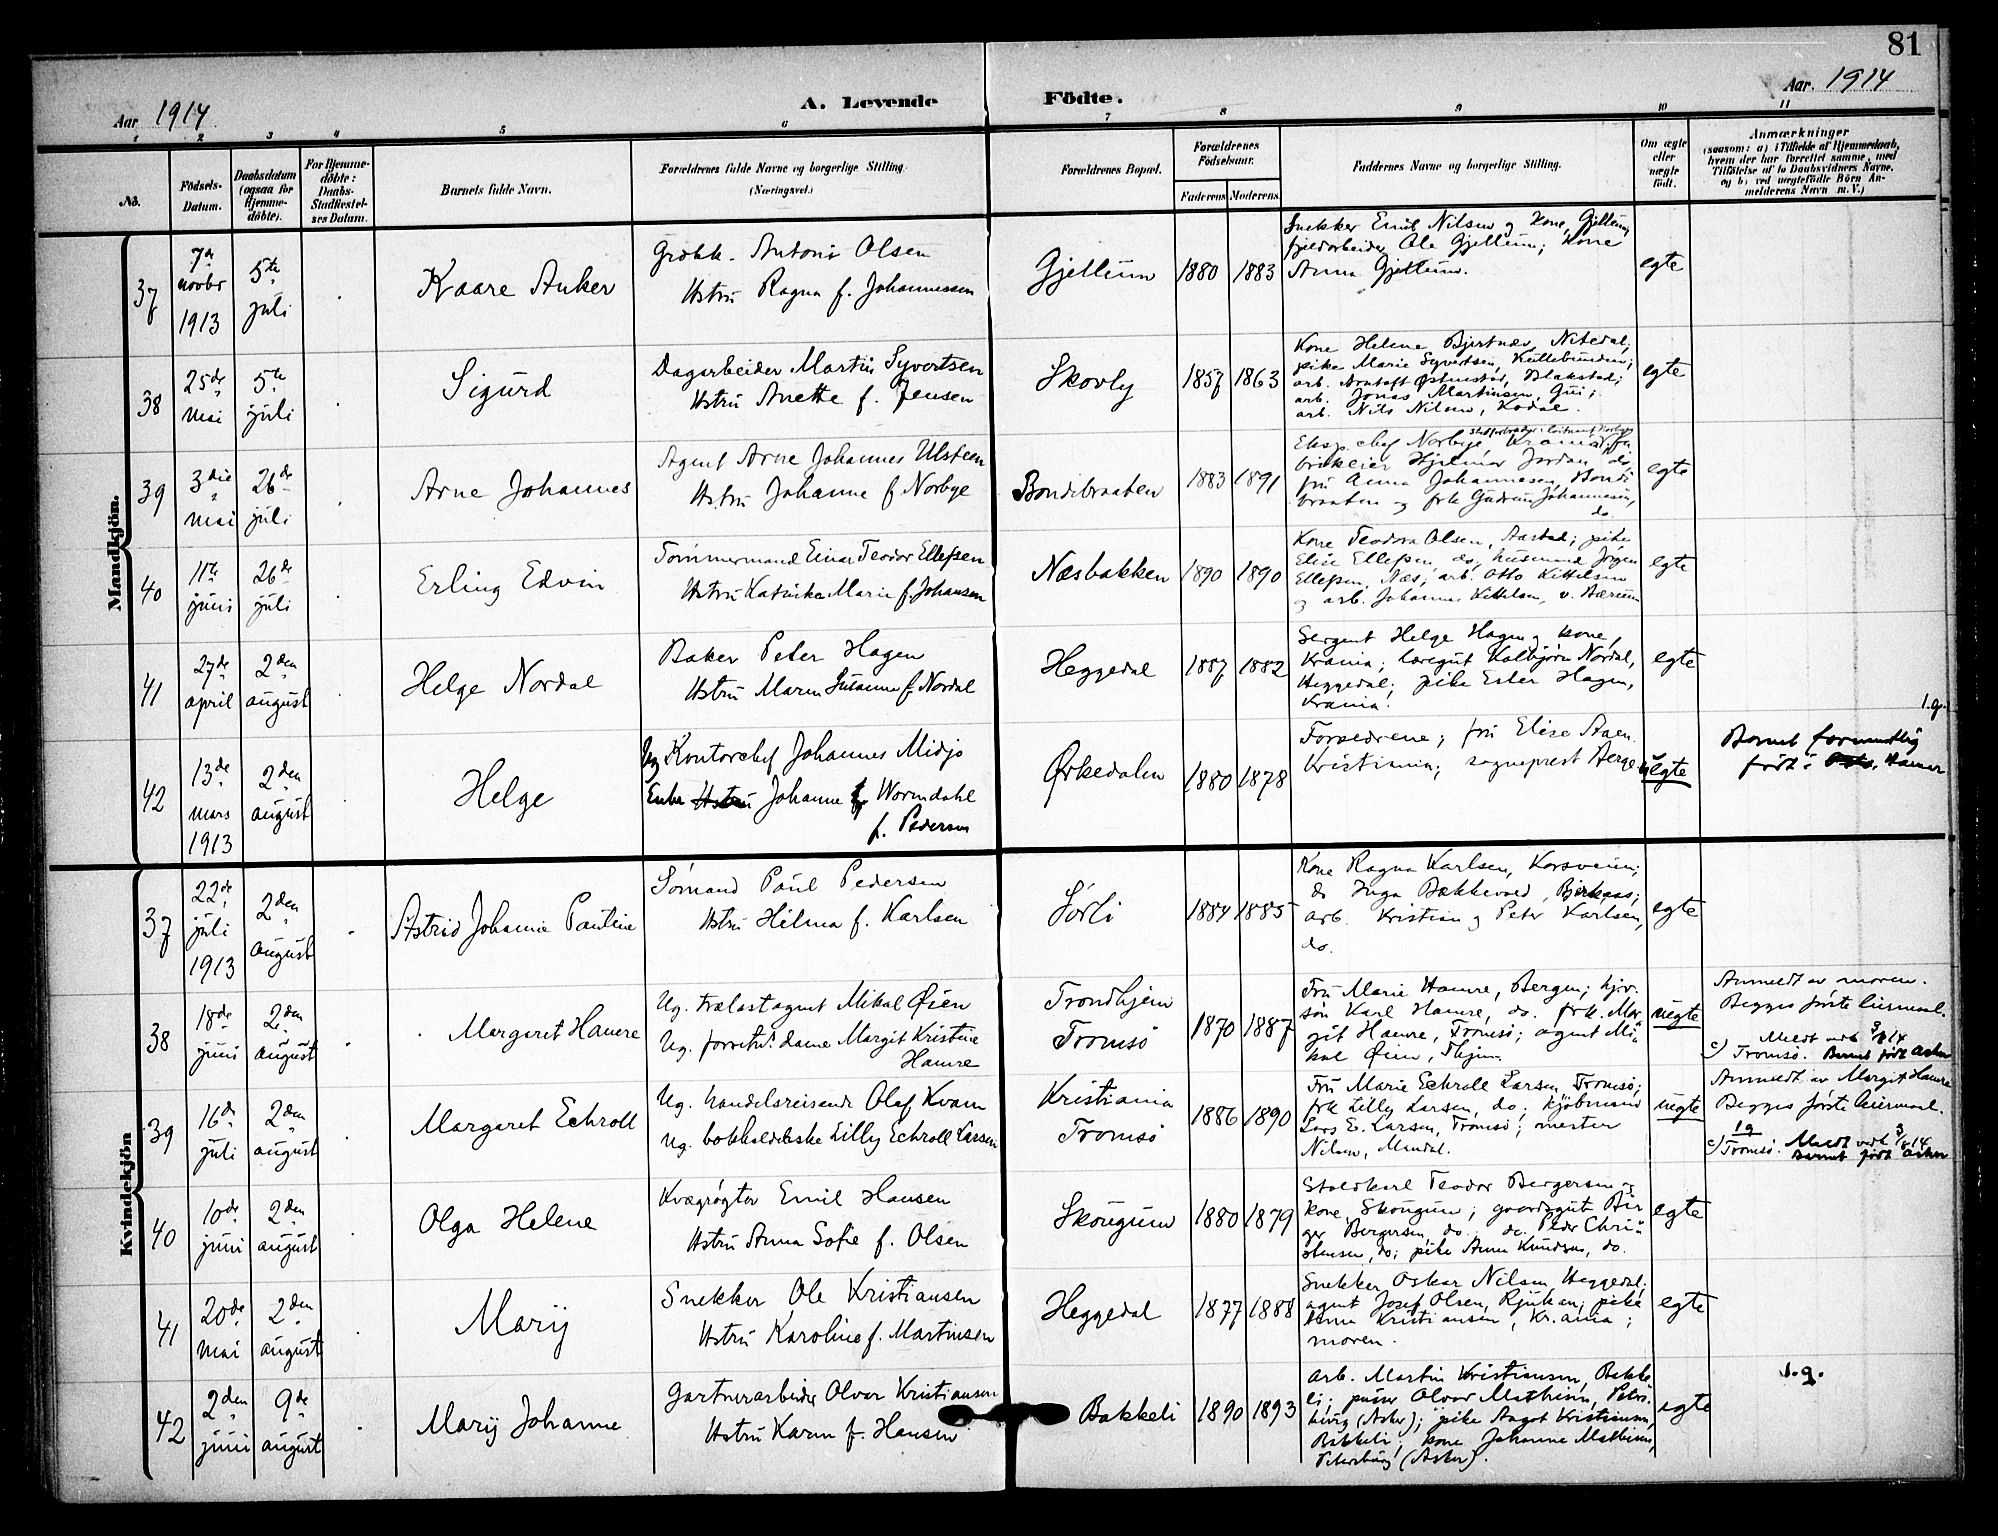 81
Aar 1914
A. Levende Födte.
Aar. 1914
1 2 3 4 5 6 7 8 9 10 11
No.
Födsels-Datum.
Daabsdatum (ogsaa for Hjemme-döbte).
For Hjemme-döbte: Daabs-Stadfæstel-ses Datum.
Barnets fulde Navn.
Forældrenes fulde Navne og borgerlige Stilling.
(Næringsvei.)
Forældrenes Bopæl.
Forældrenes Födselsaar.
Faderens Moderens
Faddernes Navne og borgerlige Stilling.
Om ægte eller uægte födt.
Anmærkninger
(saasom: a) i Tilfælde af Hjemmedaab,
hvem der har forrettet samme, med
Tilföielse af to Daabsvidners Navne.
og b) ved uægtefödte Börn An-
melderens Navn m. V.)
Mandkjön.
37
7de novbr 1913
5te juli
Kaare Anker
Grobk. Antoni Olsen
Hstru Ragna f. Johannessen
Gjellum
1880 1883
Snekker Emil Nilsen og kone, Gjellum,
fjeldarbeider Ole Gjellum; kone
Anna Gjellum.
egte
38
25de mai
5te juli
Sigurd
Dagarbeider Martin Syvertsen
Hstru Anette f. Jensen
Skovly
1857 1863
Kone Helene Bjertnæs, Nitedal;
pike Marie Syvertsen,
arb. Blakstad;
arb. Jonas Martinsen,
arb. Nils Nilsen,
egte
39
3die mai
26de juli
Arne Johannes
Agent Arne Johannes Ulsteen
Hstru Johanne f. Norbye
Bondibraaten
1883 1891
Eksp.chef Norbye
Hjalmar Jordan do,
fru Anna Johannesen, Bondi-
braaten og frk Gudrun Johannesen,
do.
egte
40
11te juni
26de juli
Erling Edvin
Tømmermand Einar Teodor Ellefsen
Hstru Katinka Marie f. Johansen
Næsbakken
1890 1890
Kone Teodora Olsen, Aastad; pike
Elise Ellefsen, do, husmand Jørgen
Ellefsen, Næs; arb. Otto Kittelsen
og arb. Johannes Kittelsen, v. Bærum
egte
41
27de april
2den august
Helge Nordal
Baker Peter Hagen
Hstru Maren Susanne f. Nordal
Heggedal
1887 1882
Sergent Helge Hagen og kone,
Krania; læregut Kolbjørn Nordal,
Heggedal; pike Ester Hagen,
Krania.
egte
42
13de mars 1913
2den august
Helge
Ug Kontorchef Johannes Midjo
Enke Hstru Johanne f. Wormdahl
f. Pedersen
Ørkedalen
1880 1878
Forældrene; fru Elise Staen
Kristiania; sogneprest Berge
uegte
1.g.
Barnet formentlig
født i Hamar
Kvindekjön
37
22de juli 1913
2den august
Astrid Johanne Pauline
Sømand Paul Pedersen
Hstru Hilma f. Karlsen
Sørli
1884 1885
Kone Ragna Karlsen, Korsveien;
do Inga Bækkevold,
arb. Kristian og Peter Karlsen,
do.
egte
38
18de juni
2den august
Margaret Hamre
Ug. trælastagent Mikal Øien
Ug. forretn.dame Margit Kristine
Hamre
Trondhjem
Tromsø
1870 1887
Fru Marie Hamre, Bergen;
Karl Hamre, do. frk. Mar-
git Hamre, Tromsø; agent Mi-
kal Øien, Thjem
uegte
Anmeldt av moren.
Begges første leiermaal.
Meldt vedk 3/8 14
c) Tromsø. Barnet født Asker
39
16de juli
2den august
Margaret Echroll
Ug. handelsreisende Olaf Kvam
Ug. bokholderske Lilly Echroll Larsen
Kristiania
Tromsø
1886 1890
Fru Marie Echroll Larsen, Tromsø;
frk Lilly Larsen, do; kjøbmand
Lars E. Larsen, Tromsø; mester
Nilsen, Mandal.
uegte
Anmeldt av Margit Hamre
Begges første leiermaal.
1g
c) Tromsø. Meldt vedk 3/8 14
Barnet født Asker
40
10de juni
2den august
Olga Helene
Kvægrøgter Emil Hansen
Hstru Anna Sofie f. Olsen
Skougum
1880 1879
Staldkarl Teodor Bergersen og
kone, Skougum; gaardsgut Bir-
ger Bergersen, do. do. Peder Chri-
stensen, do; pike Anna Knudsen, do.
egte
41
20de mai
2den august
Mary
Snekker Ole Kristiansen
Hstru Karoline f. Martinsen
Heggedal
1877 1888
Snekker Oskar Nilsen, Heggedal;
agent Josef Olsen, Rjukan; pike
Anna Kristiansen, Kr.ania;
moren.
egte
42
2den juni
9de august
Mary Johanne
Gartnerarbeider Olvar Kristiansen
Hstru Karen f. Hansen
Bakkeli
1890 1893
Arb. Martin Kristiansen, Bakke-
li; pusser Olvar Mathisen, Peters-
burg (Asker); pike Aagot Kristiansen,
Bakkeli; kone Johanne Mathisen,
Petersburg (Asker).
egte
1.g.